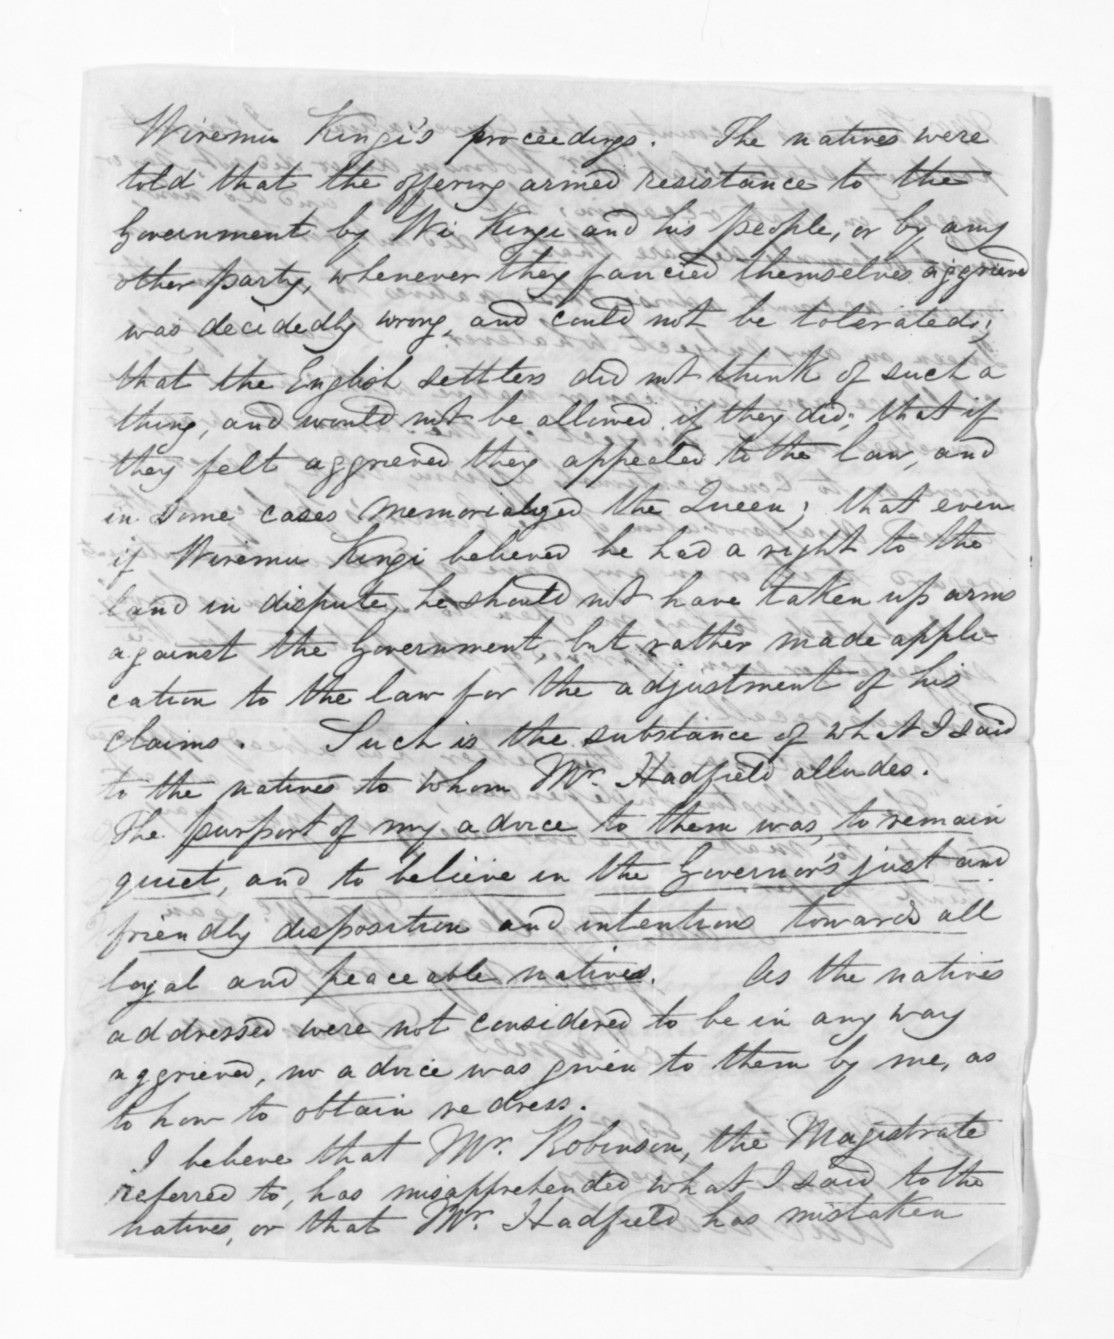 Wiremu Kingi's proceedings. The natives were
told that the offering armed resistance to the
Government by Wi Kingi and his people, or by any
other party, whenever they fancied themselves aggrieved
was decidedly wrong, and could not be tolerated;
that the English settlers did not think of such a
thing, and would not be allowed if they did; that if
they felt aggrieved they appealed to the law, and
in some cases memorialized the Queen; that even
if Wiremu Kingi believed he had a right to the
land in dispute, he should not have taken up arms
against the Government, but rather made appli-
cation to the law for the adjustment of his
claims. Such is the substance of what I said
to the natives to whom Mr. Hadfield alludes.
The purport of my advice to them was, to remain
quiet, and to believe in the Governor's just and
friendly disposition and intentions towards all
loyal and peaceable natives. As the natives
addressed were not considered to be in any way
aggrieved, no advice was given to them by me, as
to how to obtain redress.
I believe that Mr. Robinson, the Magistrate
referred to, has misapprehended what I said to the
natives, or that Mr. Hadfield has mistaken